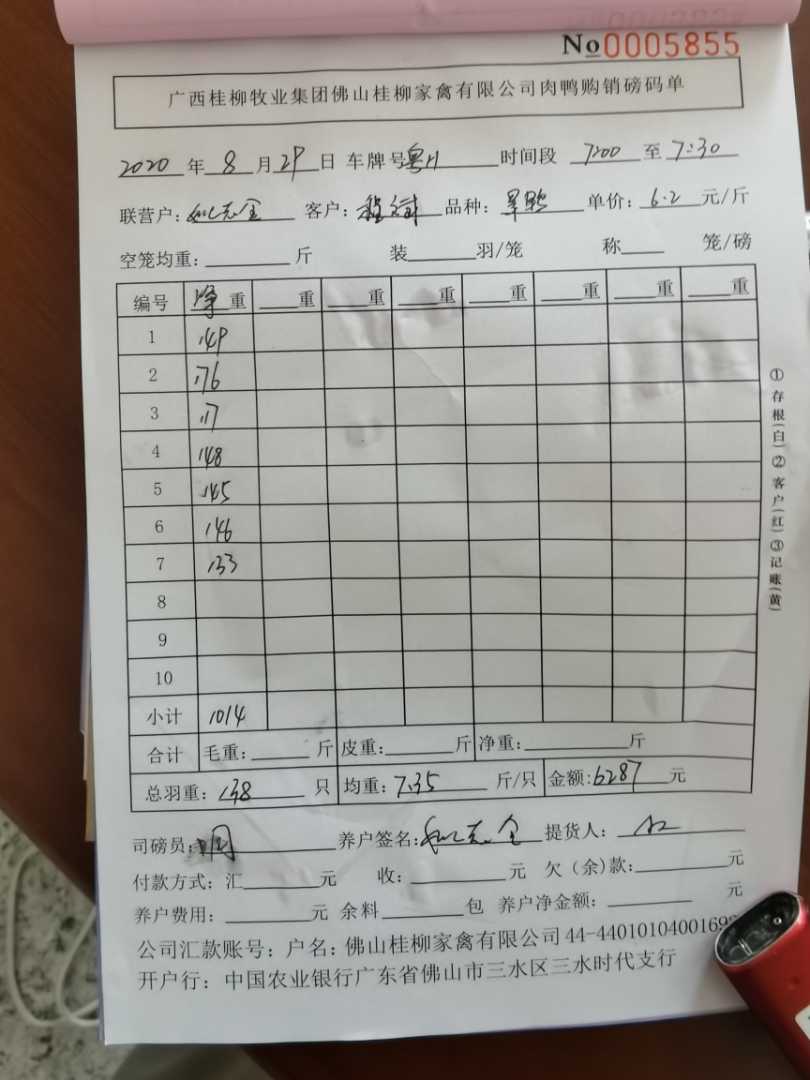 No0005855
广西桂柳牧业集团佛山桂柳家禽有限公司肉鸭购销磅码单
2020 年 8 月 29 日 车牌号粤 时间段 7:00 至 7:30
联营户： 客户： 品种： 单价：6.2 元/斤
空笼均重： 斤 装 羽/笼 称 笼/磅
编号 净重 重 重 重 重 重 重 重
1 149
2 176
3 117
4 148
5 145
6 146
7 133
8
9
10
小计 1014
合计 毛重： 斤 皮重： 斤 净重： 斤
总羽重：138 只 均重：7.35 斤/只 金额：6287 元
司磅员： 养户签名： 提货人：
付款方式：汇 元 收： 元 欠（余）款： 元
养户费用： 元 余料 包 养户净金额： 元
公司汇款账号：户名：佛山桂柳家禽有限公司 44-44010104001698
开户行：中国农业银行广东省佛山市三水区三水时代支行
①存根(白)②客户(红)③记账(黄)